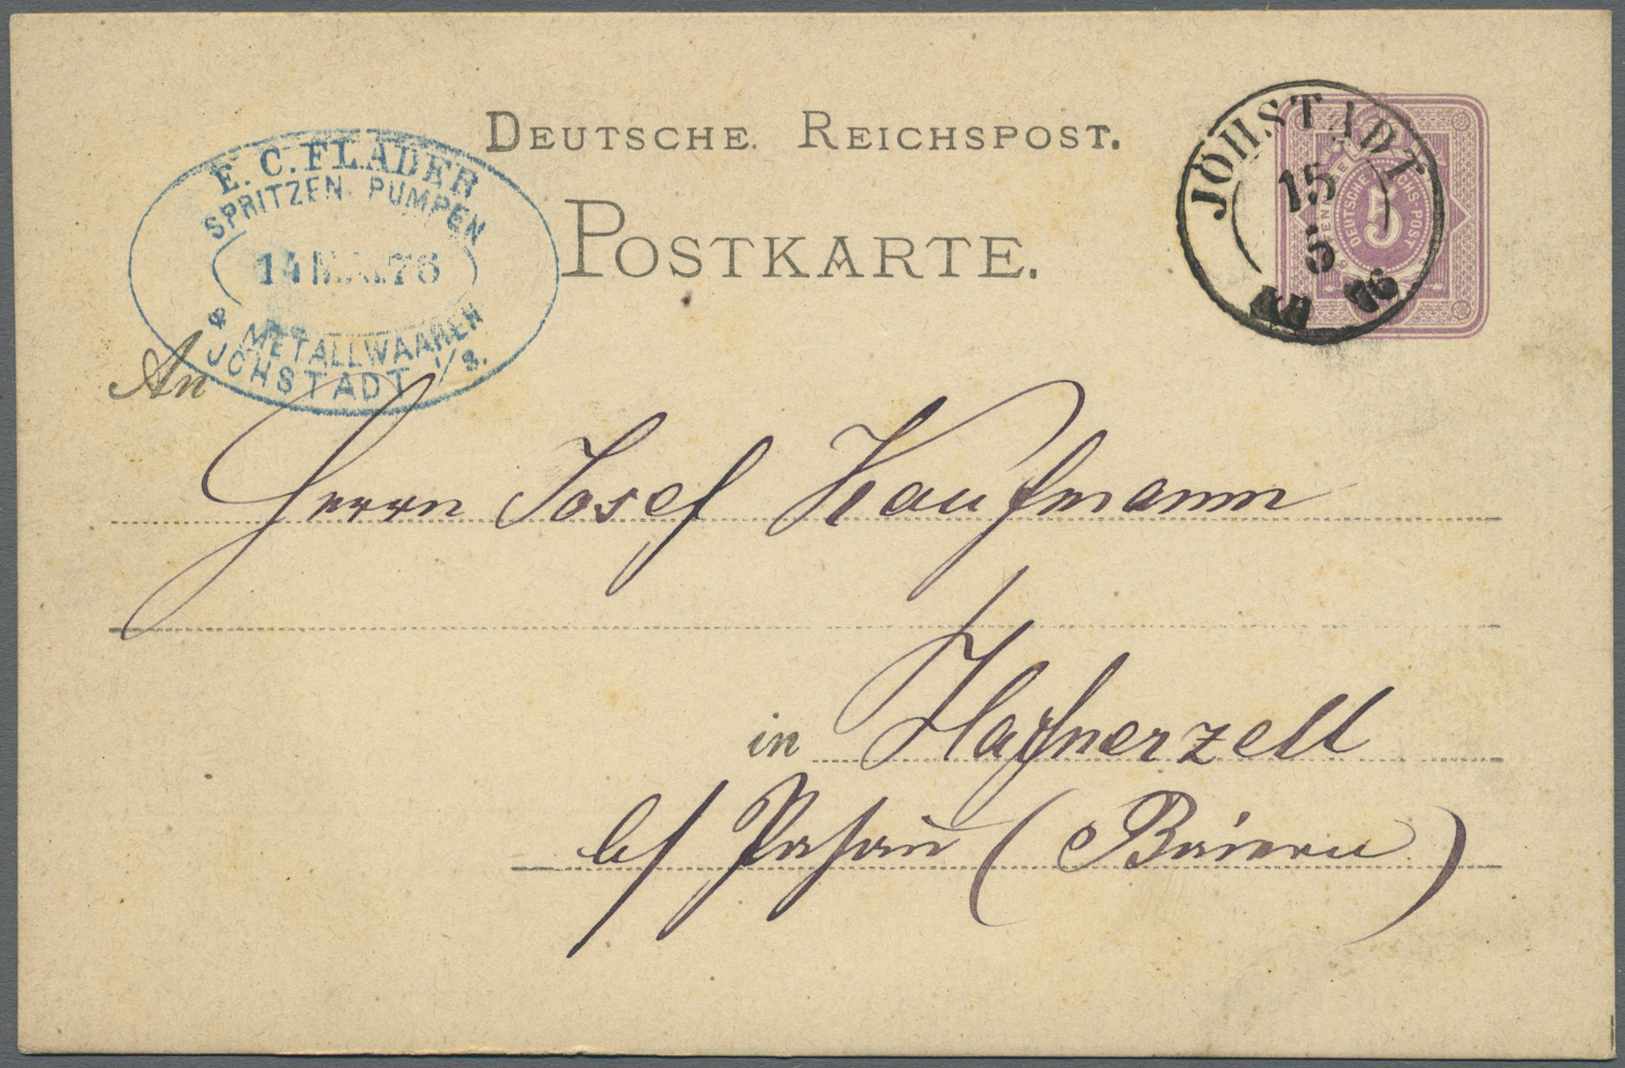 DEUTSCHE. REICHSPOST.
POSTKARTE.
E. C. FLADER
SPRITZEN. PUMPEN
14 MAI.76
& METALLWAAREN
JÖHSTADT i/S.
JÖHSTADT
15
5
76
DEUTSCHE REICHS-POST
5
An
Herrn Josef Kaufmann
in Hafnerzell
b/ Passau (Baiern)